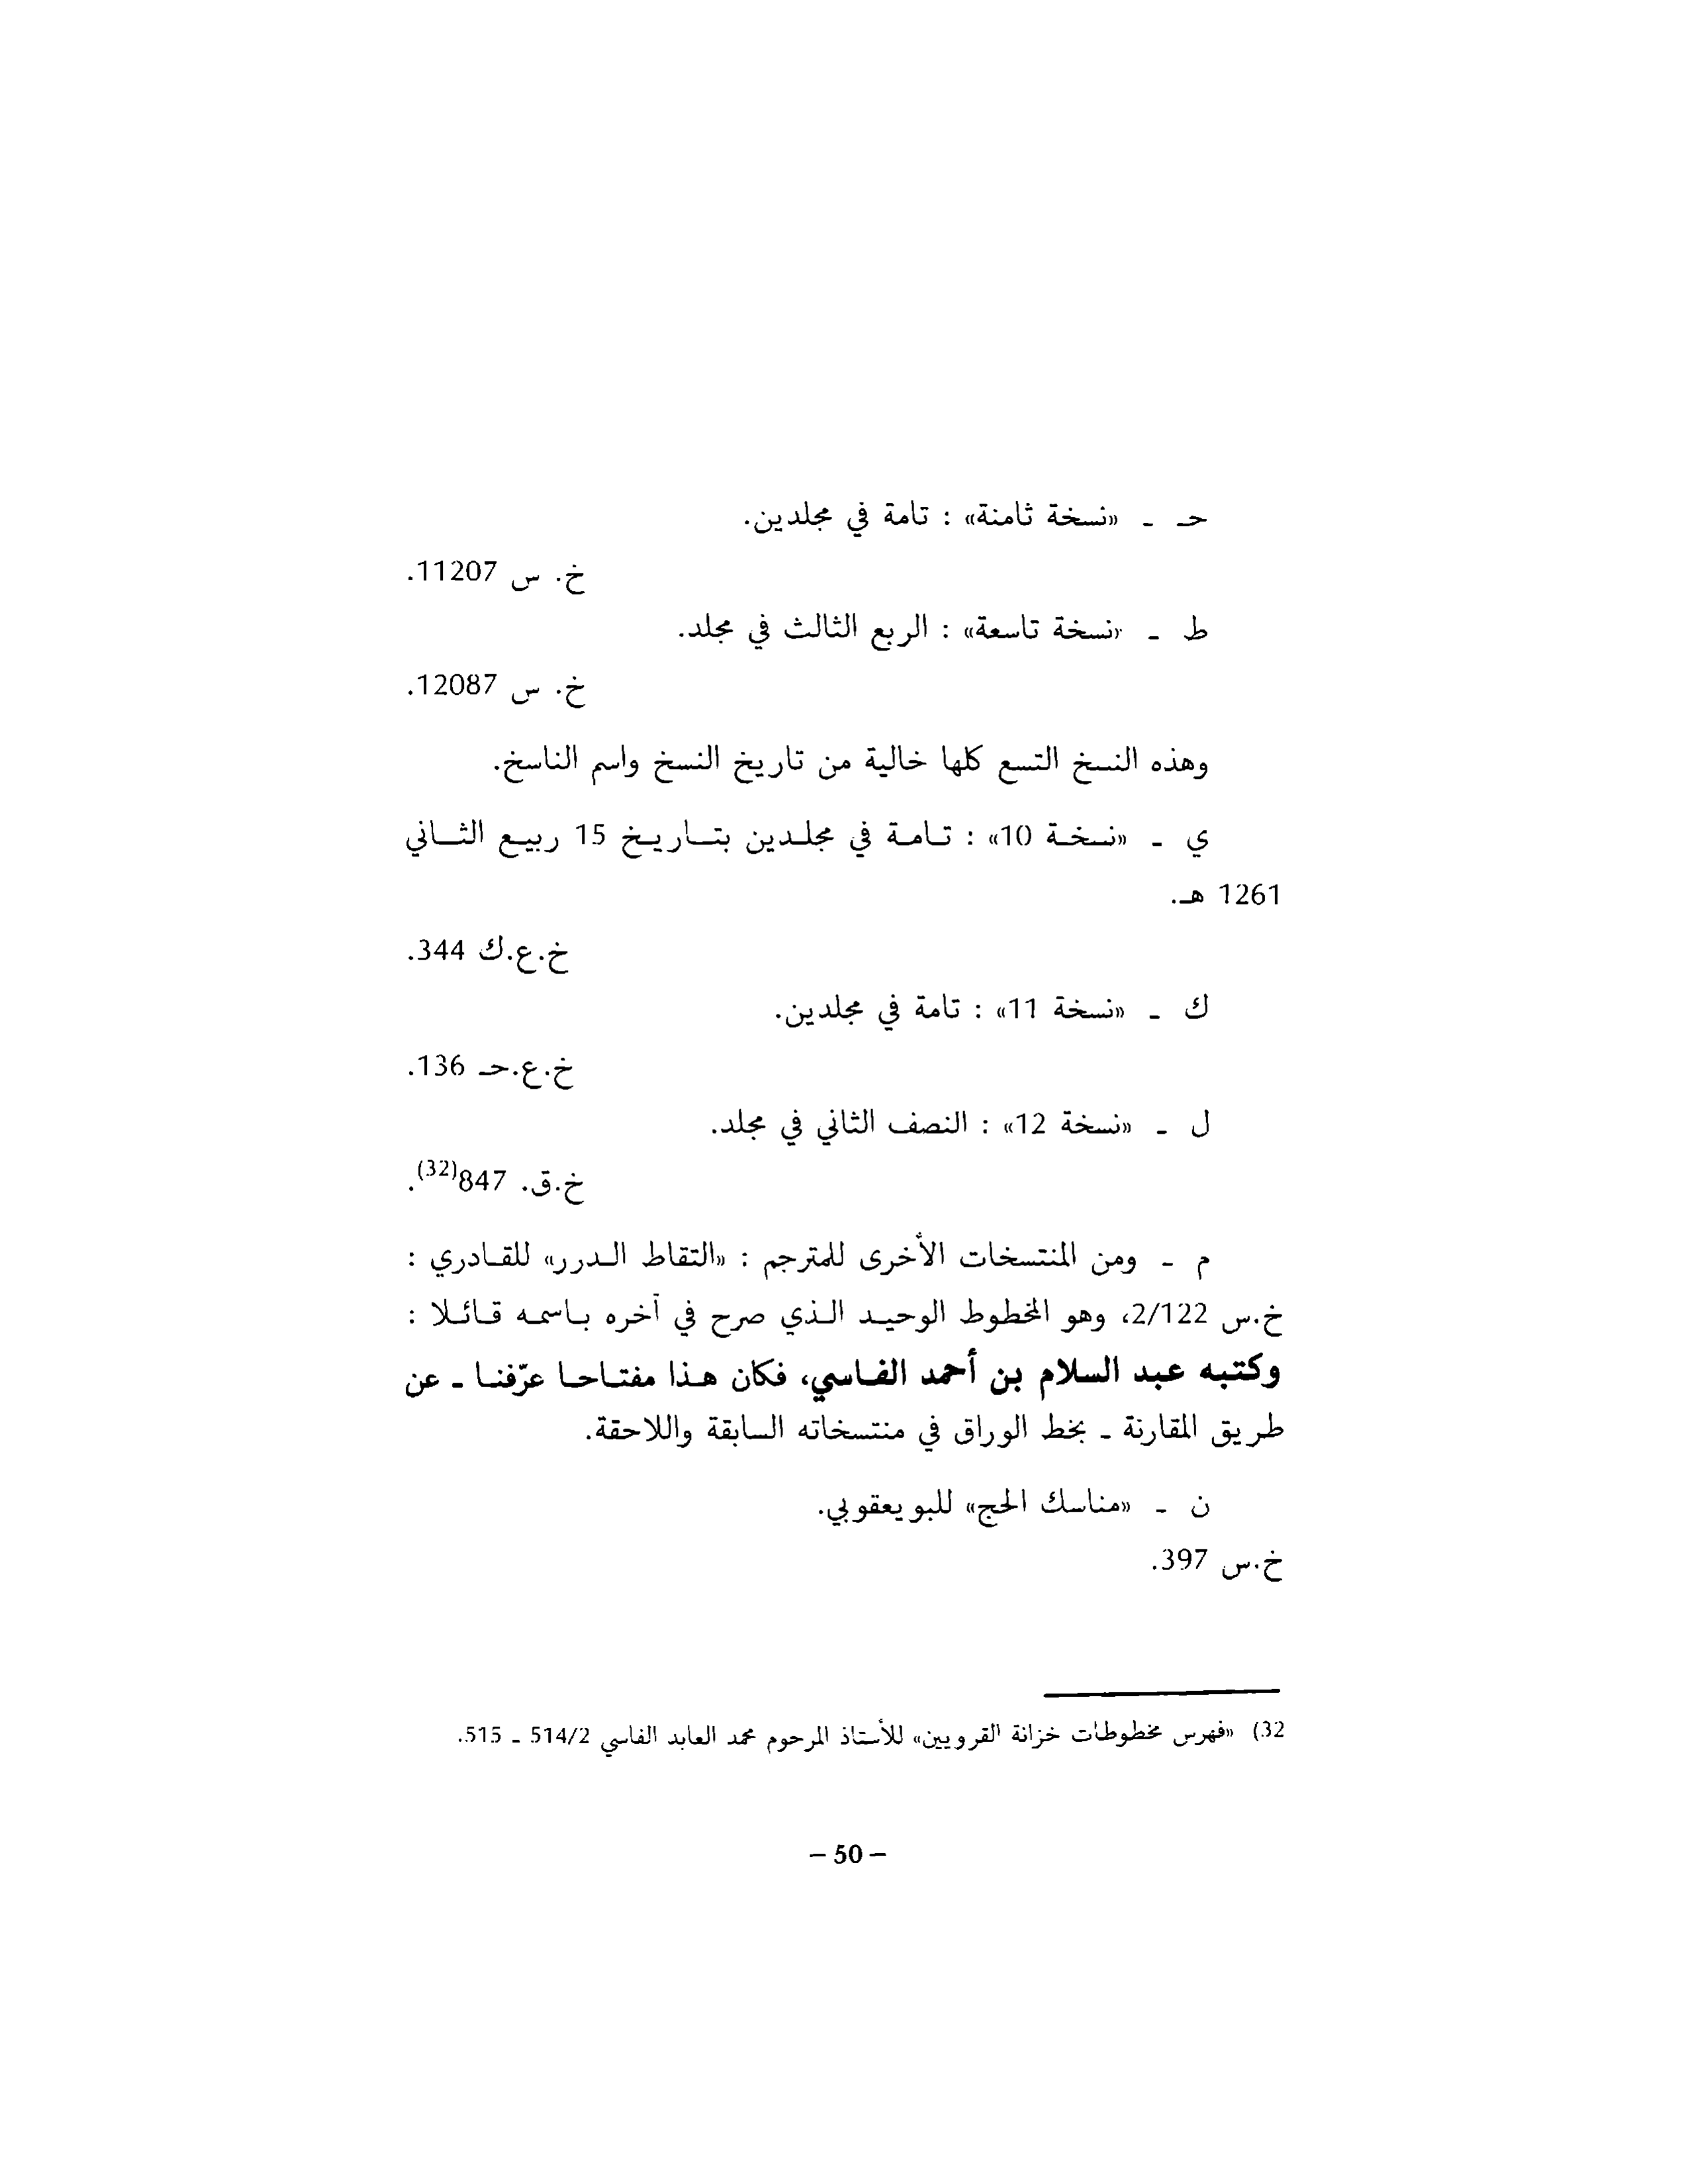 حـ ـ «نسخة ثامنة» : تامة في مجلدين.
خ. س 11207.
ط ـ «نسخة تاسعة» : الربع الثالث في مجلد.
خ. س 12087.
وهذه النسخ التسع كلها خالية من تاريخ النسخ واسم الناسخ.
ي ـ «نسخة 10» : تامة في مجلدين بتاريخ 15 ربيع الثاني
1261 هـ.
خ.ع.ك 344.
ك ـ «نسخة 11» : تامة في مجلدين.
خ.ع.حـ 136.
ل ـ «نسخة 12» : النصف الثاني في مجلد.
خ.ق. 847(32).
م ـ ومن المنتسخات الأخرى للمترجم : «التقاط الدرر» للقادري :
خ.س 2/122، وهو المخطوط الوحيد الذي صرح في آخره باسمه قائلا :
وكتبه عبد السلام بن أحمد الفاسي، فكان هذا مفتاحا عرّفنا ـ عن
طريق المقارنة ـ بخط الوراق في منتسخاته السابقة واللاحقة.
ن ـ «مناسك الحج» للبويعقوبي.
خ.س 397.
32) «فهرس مخطوطات خزانة القرويين» للأستاذ المرحوم محمد العابد الفاسي 514/2 ـ 515.
– 50 –